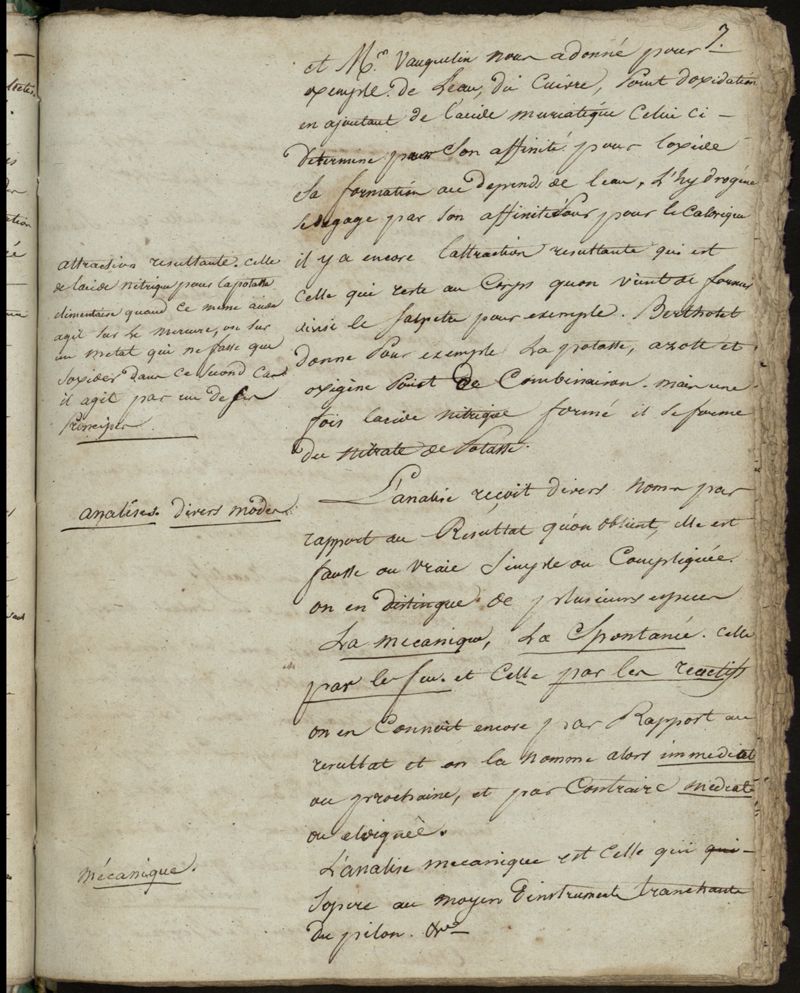 7.
et Mr. Vauquelin nous a donné pour
exemple. de Leau, du Cuivre, point doxidation
en ajoutant de l'acide muriatique Celui ci -
Determine par Son affinité pour loxide
Sa formation au depend de leau, L'hydrogéne
se degage par son affinité pour le Calorique
il y a encore lattraction resultante qui est
Celle qui reste au Corps quon vient de former
le Salpetre pour exemple. Berthotet
donne pour exemple. La potasse, azote et
oxigène point de Combinaison. mais une
fois lacide nitrique formé il se forme
du nitrate de Potasse.
attraction resultante. celle
de lacide nitrique pour la potasse
élimentaire quand ce meme acide
agit sur le mercure, ou sur
un metal qui ne fasse que
Soxider dans ce second Cas
il agit par un de ses
Principes.
L'analise reçoit divers noms par
rapport au Resultat qu'on obtient, elle est
fausse ou vraie Simple ou Compliquée.
on en distingue de plusieurs especes
La mecanique, La Spontanée. celle
par le feu. et Celle par les reactifs
analises. divers modes.
on en Connoit encore par Rapport au
resultat et on la nomme alors immediat
ou prochaine, et par Contraire mediate
ou eloignée.
mécanique.
L'analise mecanique est Celle qui qui -
Sopere au moyen d'instruments tranchants
Du pilon. &ca